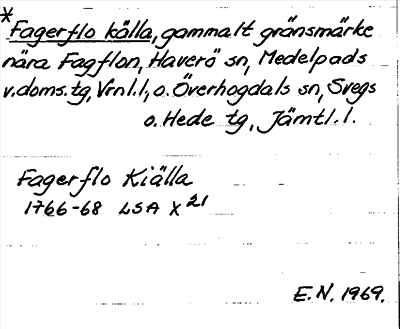 *Fagerflo källa, gammalt gränsmärke
nära Fagflon, Haverö sn, Medelpads
v.doms.tg, Vrnl.l, o. Överhogdals sn, Svegs
o. Hede tg, Jämtl. l.
Fagerflo Kiälla
1766-68 LSA X 21
E.N. 1969.